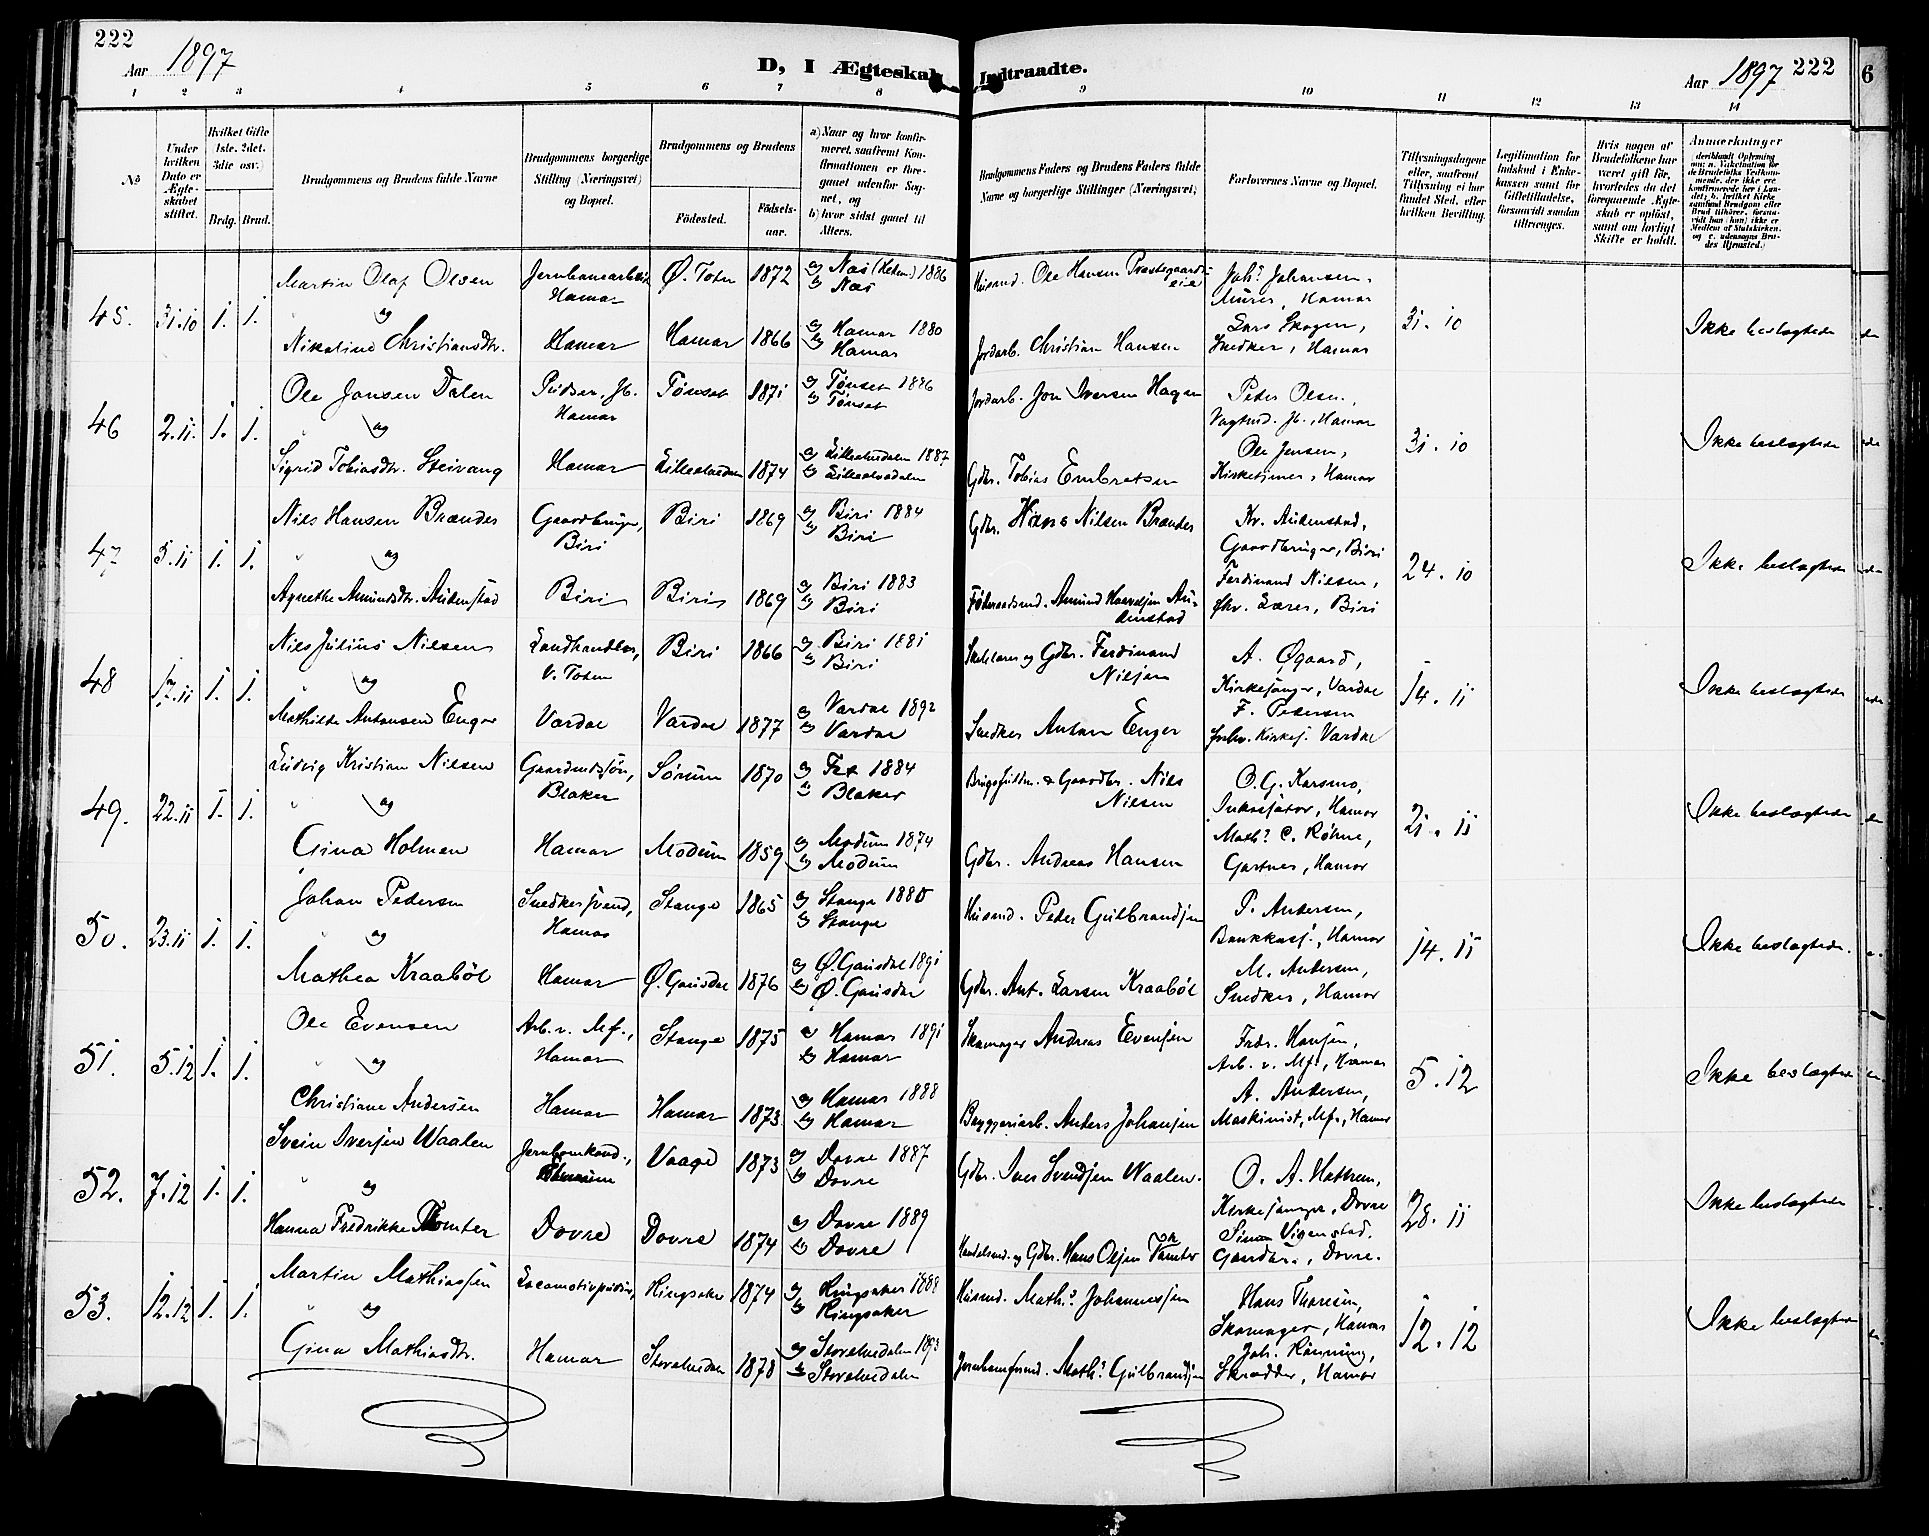 222
Aar 1897
D, I Ægteskab Indtraadte.
Aar 1897 222
6
1 2 3 4 5 6 7 8 9 10 11 12 13 14
No
Under hvilken Dato er Ægteskabet stiftet.
Hvilket Gifte 1ste. 2det. 3die osv.
Brdg. Brud.
Brudgommens og Brudens fulde Navne
Brudgommens borgerlige Stilling (Næringsvei) og Bopæl.
Brudgommens og Brudens
Födested. Födselsaar.
a) Naar og hvor konfirmeret, saafremt Konfirmationen er foregaaet udenfor Sognet, og
b) hvor sidst gaaet til Alters.
Brudgommens Faders og Brudens Faders fulde Navne og borgerlige Stillinger (Næringsvei)
Forlovernes Navne og Bopæl.
Tillysningsdagene eller, saafremt Tillysning ei har fundet Sted, efter hvilken Bevilling.
Legitimation for Indskud i Enkekassen samt for Giftetilladelse, forsaavidt saadan tiltrænges.
Hvis nogen af Brudefolkene har været gift för, hvorledes da det foregaaende Ægteskab er oplöst, samt om lovligt Skifte er holdt.
Anmærkninger
45. 31.10 1. 1. Martin Olaf Olsen
Hamar Ø. Toten 1872 a) Næs (Hedm.) 1886
b) Næs
Husmd. Ole Hansen Præstegaardseie
Johs. Johansen,
Murer, Hamar
og
Nikoline Christiansdtr. Hamar Hamar 1866 a) Hamar 1880
b) Hamar
Jordarb. Christian Hansen
Lars Skogen,
Snedker, Hamar
31. 10 Ikke beslægtede
46 2.11. 1. 1. Ole Jonsen Dalen
Pudser, Jb. Hamar Tönset 1871 a) Tönset 1886
b) Tönset
Jordarb. Jon Iversen Hagen
Peder Olsen,
Vogtmd. Jb., Hamar
og
Sigrid Tobiasdtr. Steivang Hamar Lilleelvedalen 1874 a) Lilleelvedalen 1887
b) Lilleelvedalen
Gdbr. Tobias Embretsen
Ole Jensen,
Kirketjener, Hamar
31. 10 Ikke beslægtede
47 5.11 1. 1. Nils Hansen Brændes
Gaardbruger, Biri Biri 1869 a) Biri 1884
b) Biri
Gdbr. Hans Nilsen Brændes
Kr. Audenstad,
Gaardbruger, Biri
og
Agnethe Amundsdtr. Audenstad Biri Biri 1869 a) Biri 1883
b) Biri
Föderaadsmd. Amund Haavelsen Audenstad
Ferdinand Nilsen,
fhv. Lærer, Biri
24. 10 Ikke beslægtede
48 17.11 1. 1. Nils Julius Nilsen
Landhandler, V. Toten Biri 1866 a) Biri 1881
b) Biri
Skolelærer og Gdbr. Ferdinand Nilsen
A. Øgaard,
Kirkesanger, Vardal
og
Mathilde Antonsen Enger Vardal Vardal 1877 a) Vardal 1892
b) Vardal
Snedker Anton Enger
F. Pedersen
fhv. Kirkesj. Vardal
14. 11 Ikke beslægtede
49. 22.11 1. 1. Ludvig Kristian Nilsen
Gaardmdssön, Blaker Sörum 1870 a) Fet 1884
b) Blaker
Gaardbr. Nils Nilsen
O. G. Karsmo,
Inkassator, Hamar
og
Gina Holmen Hamar Modum 1859 a) Modum 1874
b) Modum
Gdbr. Andreas Hansen
Maths. C. Röhne,
Gartner, Hamar
21. 11 Ikke beslægtede
50. 23.11 1. 1. Johan Pedersen
Snedkersvend, Hamar Stange 1865 a) Stange 1880
b) Stange
Husmd. Peder Gulbrandsen
P. Andersen,
Bankkass., Hamar
og
Mathea Kraaböl Hamar Ø. Gausdal 1876 a) Ø. Gausdal 1891
b) Ø. Gausdal
Gdbr. Ant. Larsen Kraaböl
M. Andersen,
Snedker, Hamar
14. 11 Ikke beslægtede.
51. 5.12 1. 1. Ole Evensen
Arb. v. Mf., Hamar Stange 1875 a) Hamar 1891
b) Hamar
Skomager Andreas Evensen
Fredr. Hansen,
Arb. v. Mf., Hamar
og
Christiane Andersen Hamar Hamar 1873 a) Hamar 1888
b) Hamar
Bryggeriarb. Anders Johansen
A. Andersen,
Maskinist, Mf., Hamar
5. 12 Ikke beslægtede
52. 7.12 1. 1. Svein Iversen Waalen
Jernbanekond., Vaage 1873 a) Dovre 1887
b) Dovre
Gdbr. Iver Svendsen Waalen.
O. A. Hattrem,
Kirkesanger, Dovre
og
Hanna Fredrikke Tomter Dovre Dovre 1874 a) Dovre 1889
b) Dovre
Handelsmd. og Gdbr. Hans Olsen Tomter
Simen Vigenstad,
Gaardbr., Dovre.
28. 11 Ikke beslægtede
53. 12.12 1. 1. Martin Mathiassen
Locomotivpudser, Ringsaker 1874 a) Ringsaker 1888
b) Ringsaker
Husmd. Maths. Johannessen
Hans Thoresen,
Skomager, Hamar
og
Gina Mathiasdtr. Hamar Storelvedalen 1878 a) Storelvedalen 1893
b) Storelvedalen
Jernbaneformd. Maths. Gulbrandsen
Joh. Rönning,
Skrædder, Hamar
12. 12 Ikke beslægtede